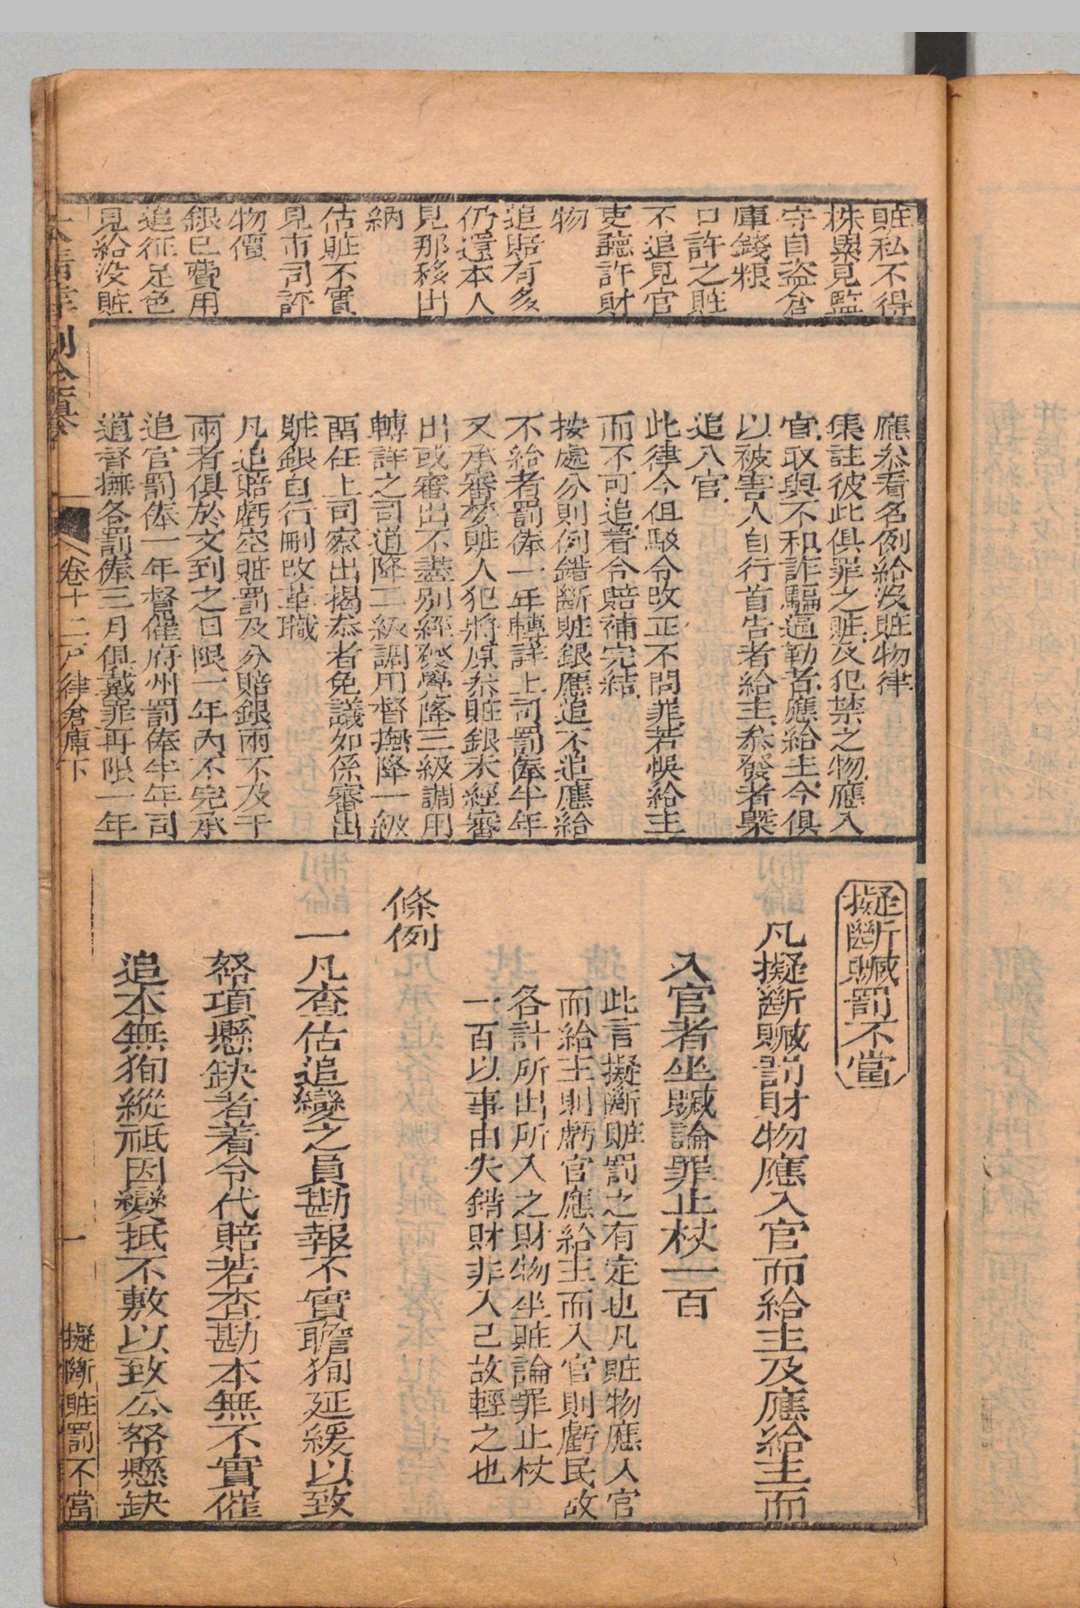 賍私不得
株異見監
守自盜倉
庫錢粮
口許之賍
不追見官
吏聽許財
物
追賠有多
仍還本人
見那移出
納
估賍不實
見市司評
物價
銀已費用
追征足色
見給没賍
應叅看名例給没賍物律
集註彼此俱罪之賍及犯禁之物應入
官取與不和詐騙逼勒者應給主今俱
以被害人自行首告者給主叅發者槩
追入官
此律今但駁令改正不問罪若悞給主
而不可追着令賠補完結
按處分則例錯斷賍銀應追不追應給
不給者罰俸一年轉詳上司罰俸半年
又承審婪賍人犯將原叅賍銀未經審
出或審出不盡别經發覺降三級調用
轉詳之司道降二級調用督撫降一級
畱任上司察出揭叅者免議如係審出
賍銀自行刪改革職
凡追賠虧空賍罰及分賠銀兩不及千
兩者俱於文到之日限一年內不完承
追官罰俸一年督催府州罰俸半年司
道督撫各罰俸三月俱戴罪再限一年
擬斷贓罰不當
凡擬斷贓罰財物應入官而給主及應給主而
入官者坐贓論罪止杖一百
此言擬斷賍罰之有定也凡賍物應入官
而給主則虧官應給主而入官則虧民故
各計所出所入之財物坐賍論罪止杖
一百以事由失錯財非入己故輕之也
條例
一凡查估追變之員勘報不實瞻狥延緩以致
帑項懸缺者着令代賠若查勘本無不實催
追本無狥縱祗因變抵不敷以致公帑懸缺
大清律例㑹纂
卷十二戸律倉庫下
一
擬斷賍罰不當